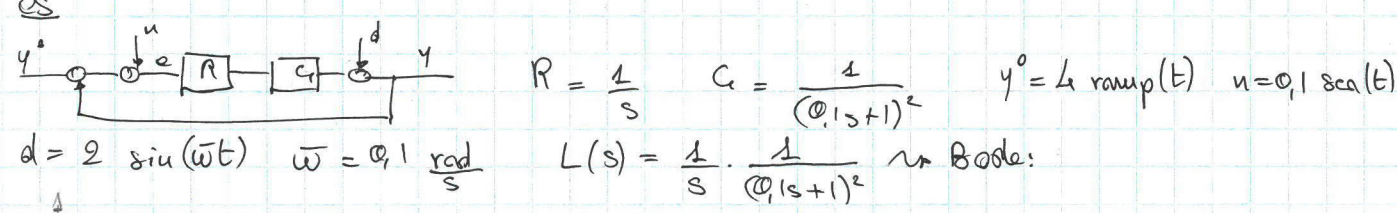 es
y° n e R G d y
R = 1/s G = 1/(0,1s+1)² y° = 4 ramp(t) n = 0,1 sca(t)
d = 2 sin(ω̄t) ω̄ = 0,1 rad/s L(s) = 1/s · 1/(0,1s+1)² ⇝ Bode: